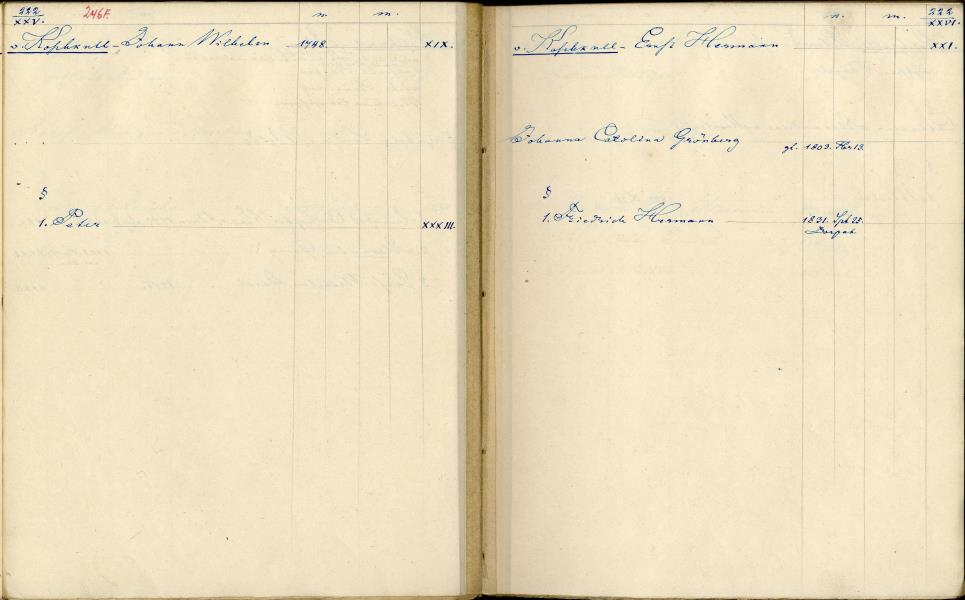 222
XXV.
246F.
n.
m.
v. Koskull - Johann Wilhelm 1748. XIX.
§
1. Peter XXXIII.
n.
m.
222
XXVI.
v. Koskull - Ernst Hermann XXI.
Johanna Carolina Grönberg gl. 1803. 13.
§
1. Friedrich Hermann 1831. Spt 25.
Dorpat